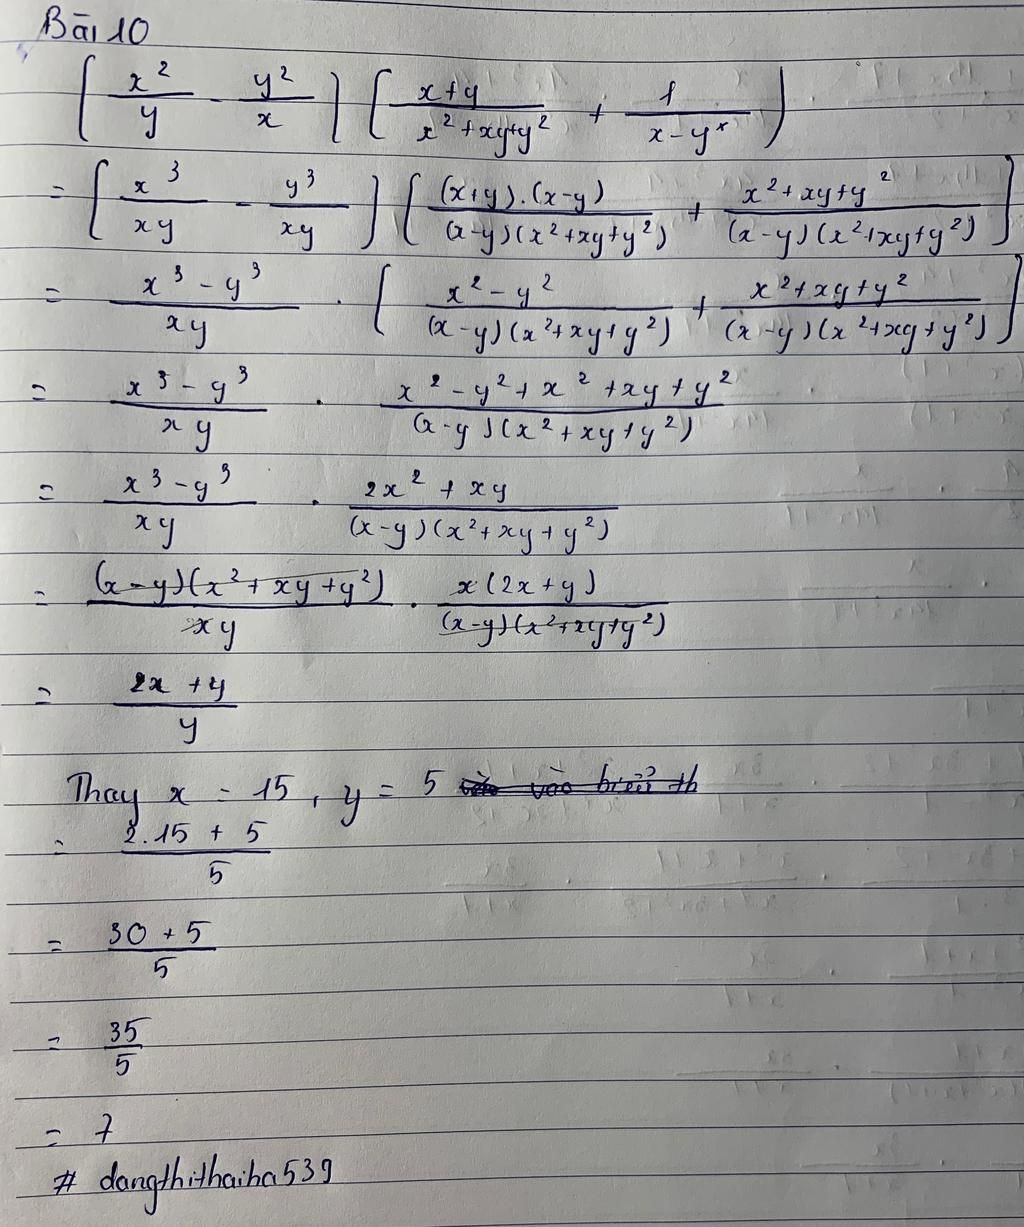 Bài 10
[x²/y - y²/x] [(x+y)/(x²+xy+y²) + 1/(x-y)]
= [x³/xy - y³/xy] [(x+y).(x-y)/(x-y)(x²+xy+y²) + (x²+xy+y²)/(x-y)(x²+xy+y²)]
= (x³-y³)/xy . [(x²-y²)/(x-y)(x²+xy+y²) + (x²+xy+y²)/(x-y)(x²+xy+y²)]
= (x³-y³)/xy . (x²-y²+x²+xy+y²)/(x-y)(x²+xy+y²)
= (x³-y³)/xy . (2x²+xy)/(x-y)(x²+xy+y²)
= (x-y)(x²+xy+y²)/xy . x(2x+y)/(x-y)(x²+xy+y²)
= (2x+y)/y
Thay x = 15, y = 5 vào biểu th
= (2.15+5)/5
= (30+5)/5
= 35/5
= 7
# dangthithaiha539